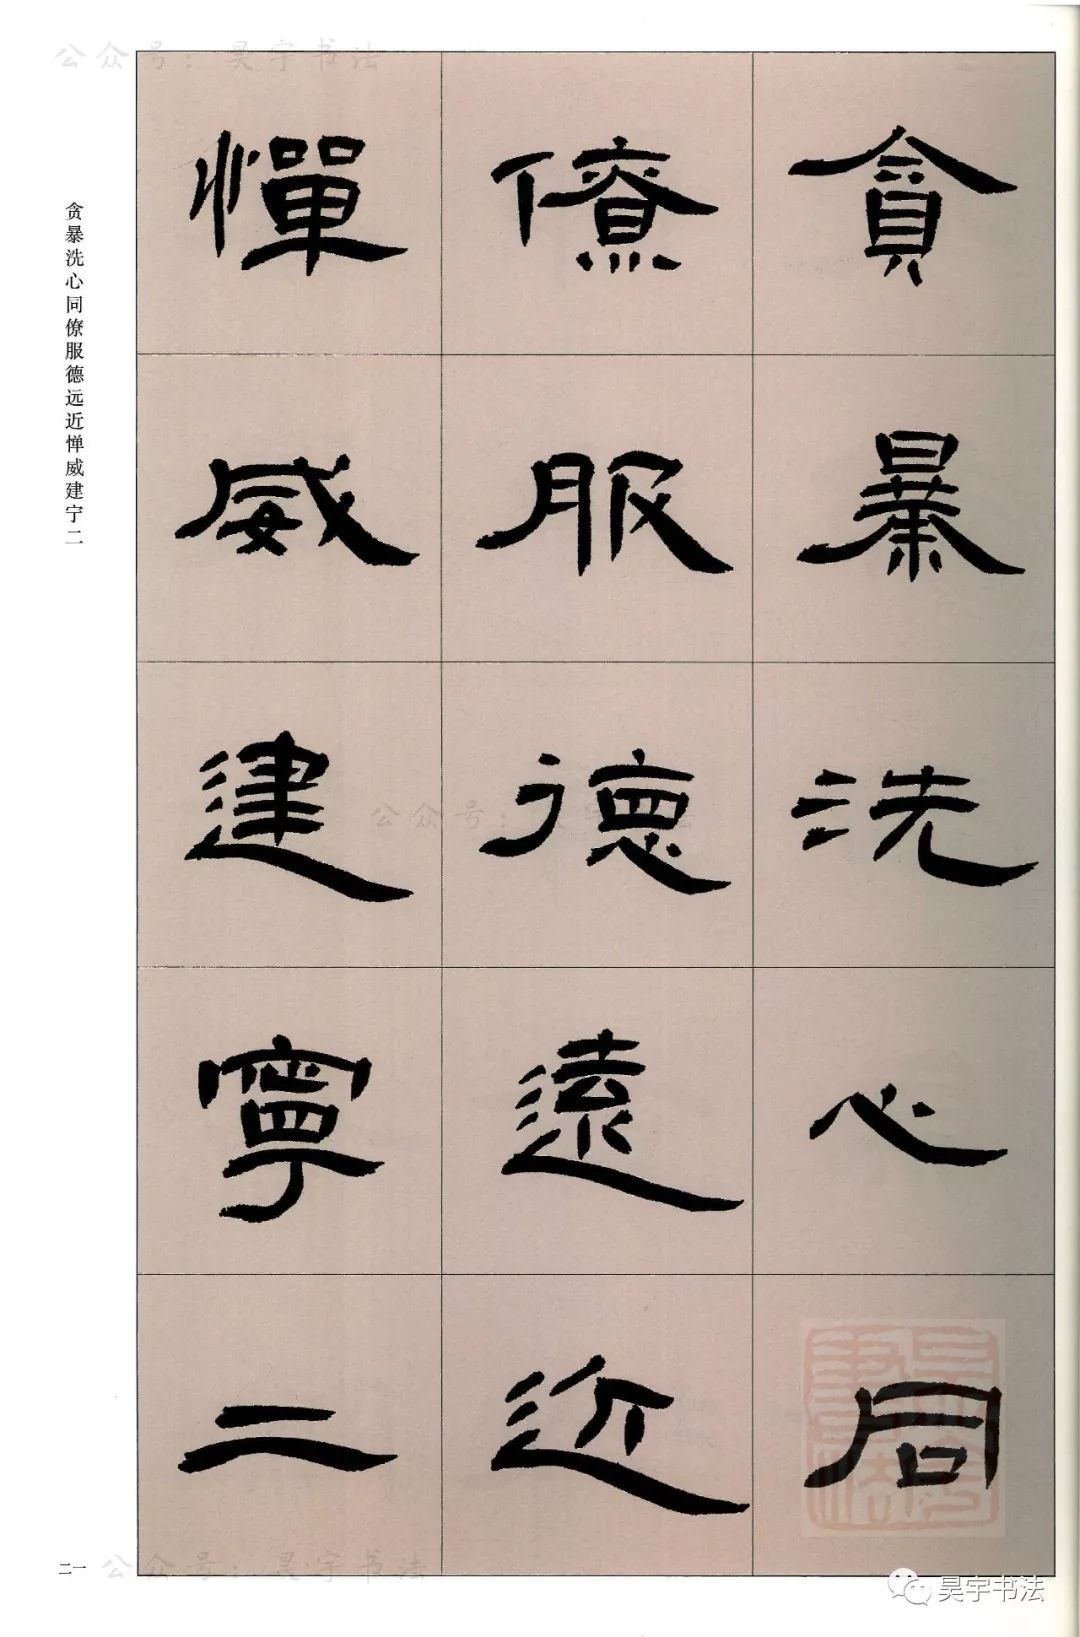 貪暴洗心同
僚服德遠近
憚威建寧二
贪暴洗心同僚服德远近惮威建宁二
二一
公众号：昊宇书法
公众号：昊宇书法
公众号：昊宇书法
昊宇书法